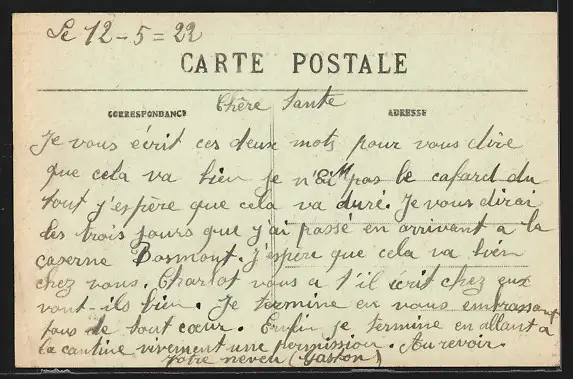 Le 12-5=22
CARTE POSTALE
Chère Tante
CORRESPONDANCE
ADRESSE
Je vous écrit ces deux mots pour vous dire
que cela va bien je n'ai pas le cafard du
tout j'espère que cela va duré. Je vous dirai
les trois jours que j'ai passé en arrivant a la
caserne Bosmont. J'espère que cela va bien
chez vous. Charlot vous a t'il écrit chez eux
vont-ils bien. Je termine en vous embrassant
tous de tout cœur. Enfin je termine en allant a
la cantine vivement une permission. Au revoir.
Votre neveu (Gaston)